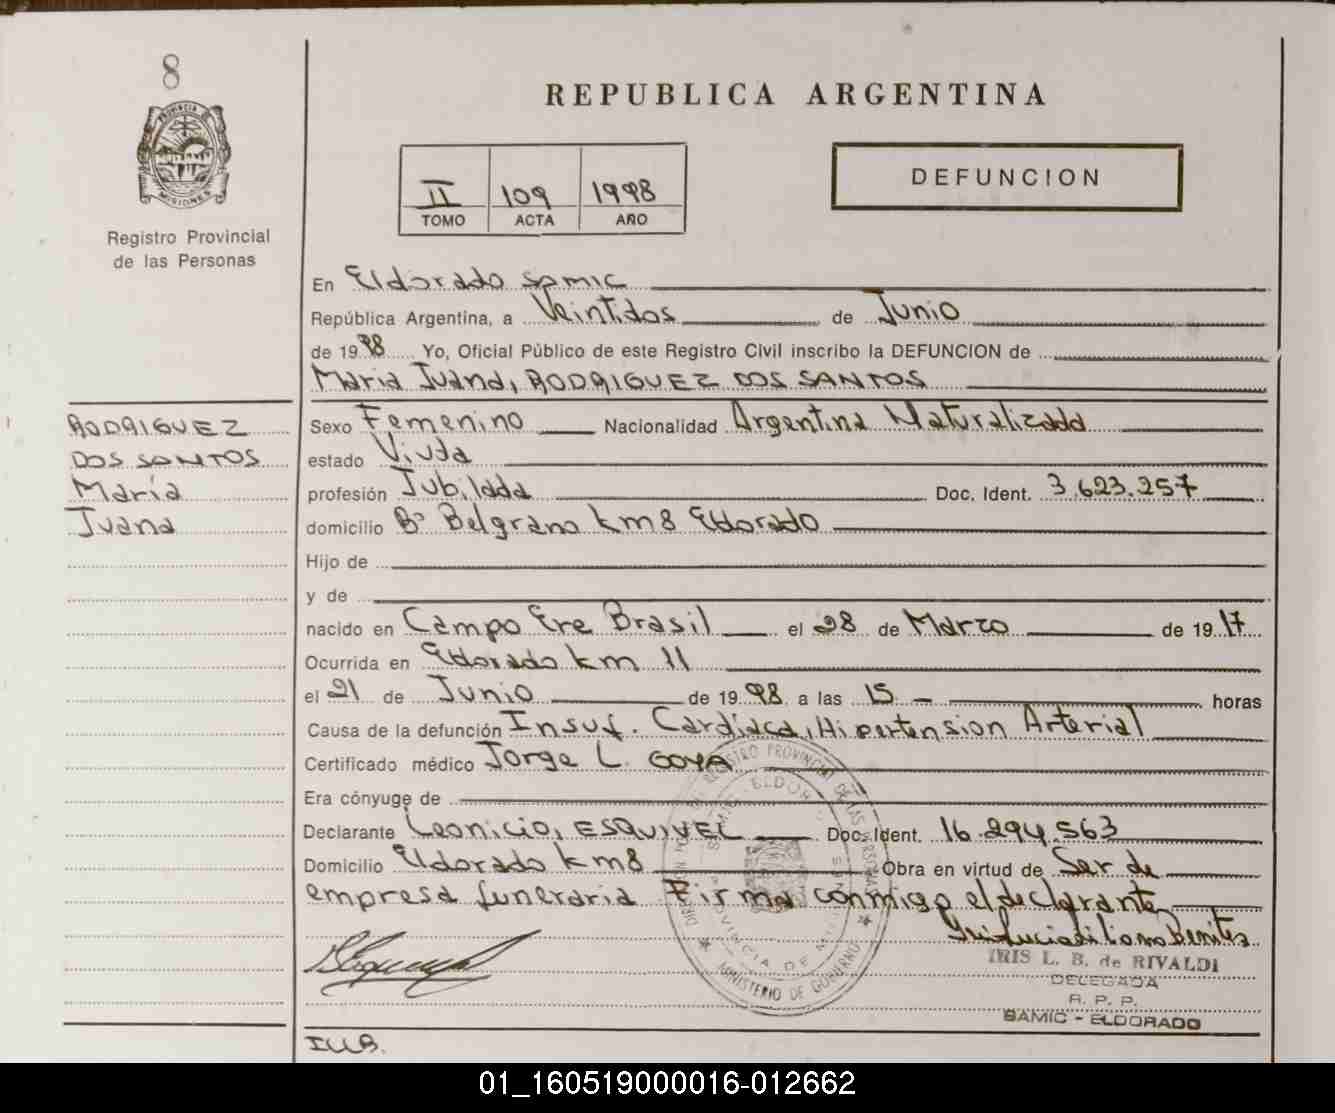 8
PROVINCIA DE
MISIONES
Registro Provincial
de las Personas
REPUBLICA ARGENTINA
II 109 1998
TOMO ACTA AÑO
DEFUNCION
En Eldorado Samic
República Argentina, a Veintidos de Junio
de 1998 Yo, Oficial Público de este Registro Civil inscribo la DEFUNCION de
Maria Juana, RODRIGUEZ DOS SANTOS
RODRIGUEZ
DOS SANTOS
María
Juana
Sexo Femenino Nacionalidad Argentina Naturalizada
estado Viuda
profesión Jubilada Doc. Ident. 3.623.257
domicilio Bº Belgrano km 8 Eldorado
Hijo de
y de
nacido en Campo Ere Brasil el 28 de Marzo de 1917
Ocurrida en Eldorado km 11
el 21 de Junio de 1998 a las 15 - horas
Causa de la defunción Insuf. Cardíaca, Hipertension Arterial
Certificado médico Jorge L. GOYA
Era cónyuge de
Declarante Leonicio, ESQUIVEL Doc. Ident. 16.294.563
Domicilio Eldorado km 8 Obra en virtud de Ser de
empresa funeraria Firma conmigo el declarante
REGISTRO PROVINCIAL DE LAS PERSONAS
MINISTERIO DE GOBIERNO
PROVINCIA DE MISIONES
IRIS L. B. de RIVALDI
DELEGADA
R. P. P.
SAMIC - ELDORADO
ILLB.
01_160519000016-012662